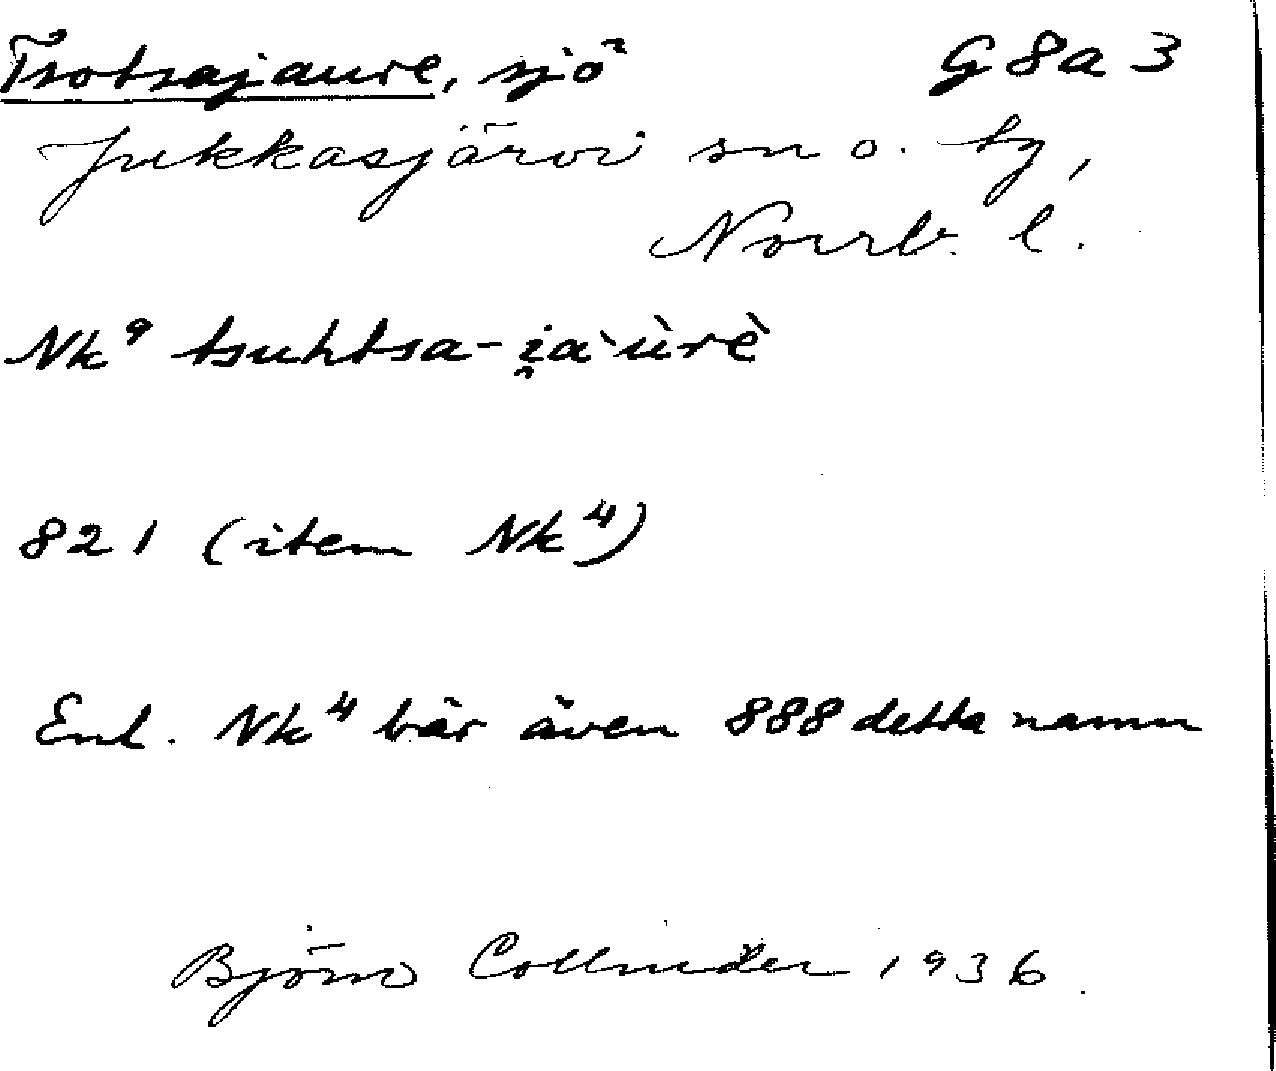 Tsotsajaure, sjö G8a3
Jukkasjärvi sn o. tg,
Norrb. l.
Nk⁹ tsuhtsa-i̯à ùrè
821 (item Nk⁴)
Enl. Nk⁴ bär även 888 detta namn
Björn Collinder 1936